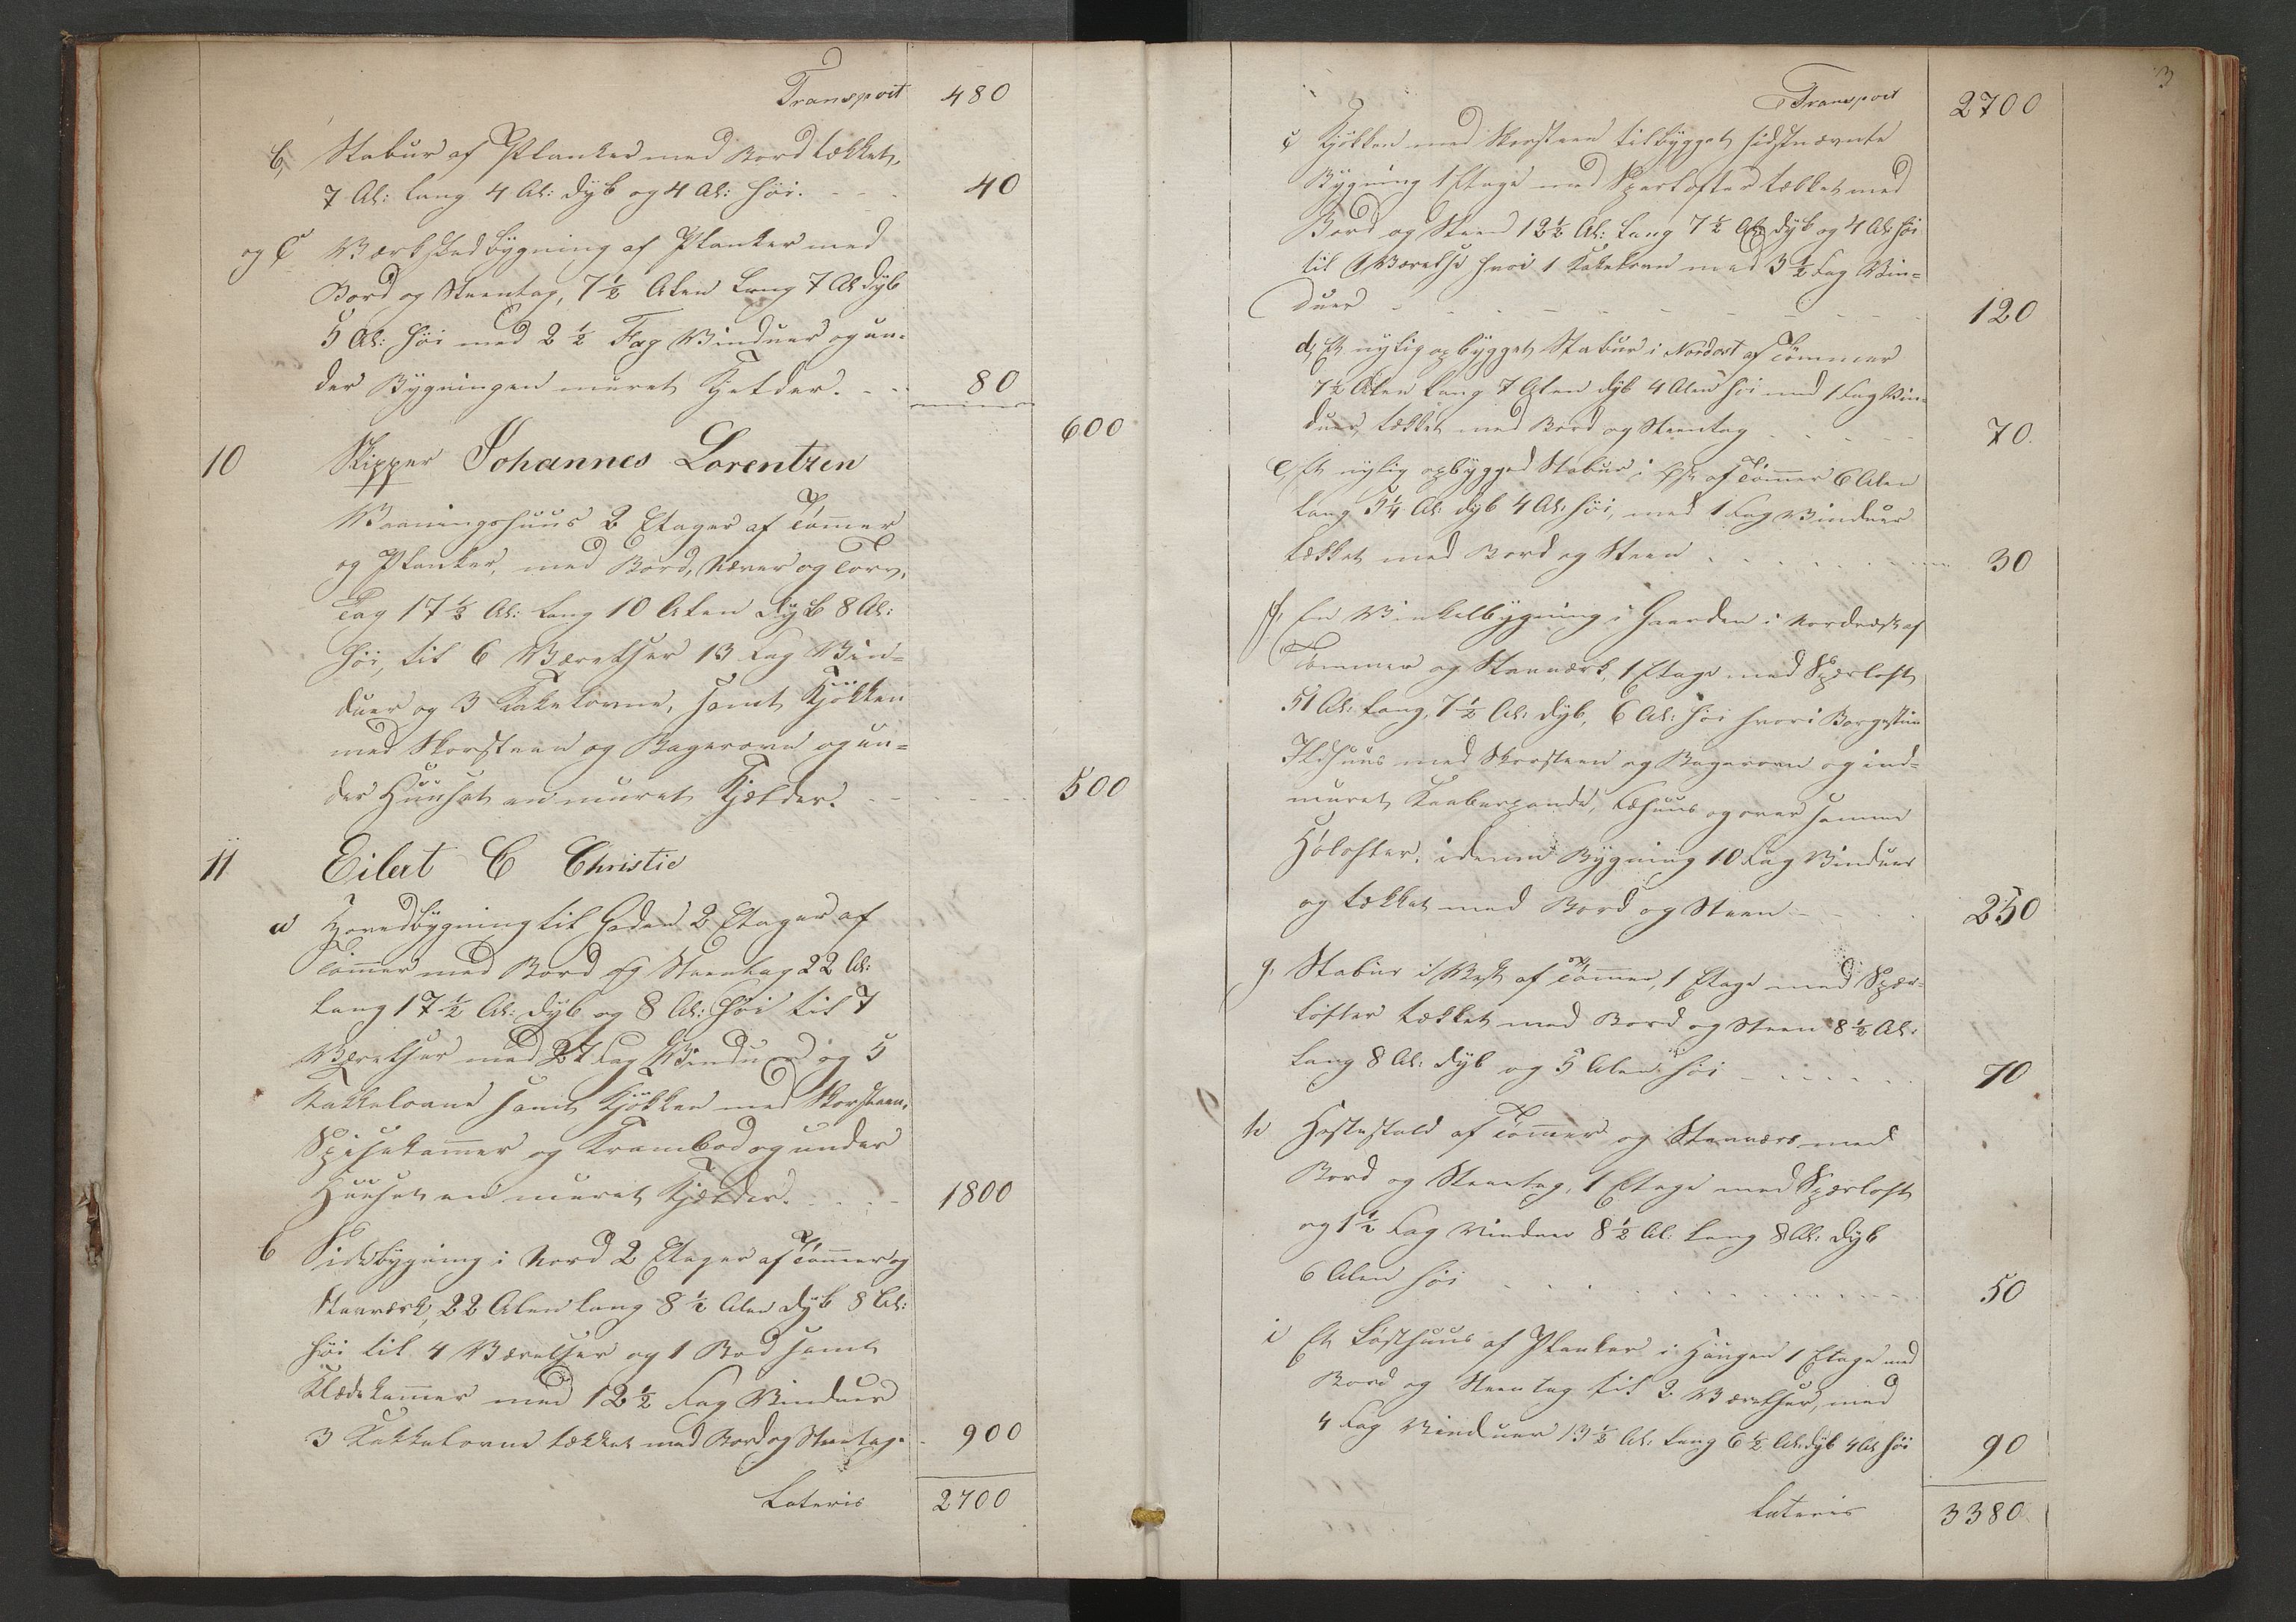 Transport 480
b, Stabur af Planker med Bord tækket,
7 Al: lang 4 Al: dyb og 4 Al: høi. - - - 40
og c Værkstedbygning af Planker med
Bord og Steentag, 7 1/2 Alen lang 7 Al dyb
5 Al: høi med 2 1/2 Fag Vinduer og un-
der Bygningen muret Kjelder. - - 80
600
10 Skipper Johannes Lorentzen
Vaaningshuus 2 Etager af Tømer
og Planker, med Bord, Næver og Torv,
Tag 17 1/2 Al: lang 10 Alen dyb 8 Al:
høi, til 6 Værelser 13 Fag Vin=
duer og 3 Kakelovne, samt Kjökken
med Skorsteen og Bagerovn og un=
der Huuset en muret Kjelder. - - - - 500
11 Eilert C Christie
a Hovedbygning til Gaden 2 Etager af
Tømmer med Bord og Steentag 22 Al:
lang 17 1/2 Al: dyb og 8 Al: høi til 7
Værelser med 27 Fag Vinduer og 5
Kakkelovne samt Kjökken med Skorsteen,
Spisekamer og Krambod og under
Huuset en muret Kjelder. - - - - 1800
b Sidebygning i Nord 2 Etager af Tømer og
Steenværk, 22 Alen lang 8 1/2 Alen dyb 8 Al:
høi til 4 Værelser og 1 Bod samt
Klædekamer med 12 1/2 Fag Vinduer
3 Kakkelovne tækket med Bord og Steentag. - 900
Lateris 2700
3
Transport 2700
c Kjökken med Skorsteen tilbygget sidstnævnte
Bygning 1 Etage med Sperlofter tækket med
Bord og Steen 12 1/2 Al: lang 7 1/2 Al: dyb og 4 Al: høi
til 1 Værelse hvori 1 Kakelovn med 3 1/2 Fag Vin=
duer - - - - - 120
d, Et nylig opbygget Stabur i Nordost af Tømmer
7 1/2 Alen lang 7 Alen dyb 4 Alen høi med 1 Fag Vin=
duer, tækket med Bord og Steentag - - - - 70.
e, Et nylig opbygged Stabur i Øst af Tømer 6 Alen
lang 5 1/4 Al: dyb 4 Al: høi, med 1 Fag Vinduer
tækket med Bord og Steen - - - - 30
f, En Vinkelbygning i Gaarden i Nordvest af
Tømmer og Steenværk, 1 Etage med Sperloft
51 Al: lang, 7 1/2 Al: dyb, 6 Al: høi hvori Borgestue
Ildhuus med Skorsteen og Bagerovn og ind=
muret Kaaberpande, Fæhuus og over samme
Høloftet, i denne Bygning 10 Fag Vinduer
og tækket med Bord og Steen - - - 250
g, Stabur i Vest af Tømer, 1 Etage med Sper=
lofter tækket med Bord og Steen 8 1/2 Al:
lang 8 Al: dyb og 5 Alen høi - - - - 70
h Hestestald af Tømer og Steenværk med
Bord og Steentag, 1 Etage med Sperloft
og 1 1/2 Fag Vinduer 8 1/2 Al: lang 8 Al: dyb
6 Alen høi - - - - - 50
i Et Lysthuus af Planker i Haugen 1 Etage med
Bord og Steentag til 2 Værelser, med
4 Fag Vinduer 13 1/2 Al: lang 6 1/2 Al: dyb 4 Al høi 90
Lateris 3380